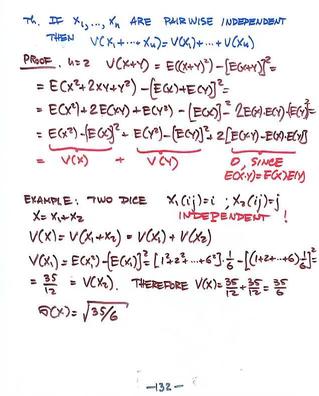 Th. IF X₁,...,Xₙ ARE PAIRWISE INDEPENDENT
THEN V(X₁+...+Xₙ)=V(X₁)+...+V(Xₙ)
PROOF. n=2 V(X+Y) = E((X+Y)²)-[E(X+Y)]²=
= E(X²+2XY+Y²) -[E(X)+E(Y)]²=
= E(X²)+2E(XY)+E(Y²)-[E(X)]²-2E(X)E(Y)-[E(Y)]²=
= E(X²)-[E(X)]²+E(Y²)-[E(Y)]²+2[E(XY)-E(X)·E(Y)]
= V(X) + V(Y) 0, SINCE
E(X·Y)=E(X)E(Y)
EXAMPLE: TWO DICE X₁(i,j)=i ; X₂(i,j)=j
X=X₁+X₂ INDEPENDENT !
V(X)=V(X₁+X₂) = V(X₁)+V(X₂)
V(X₁)=E(X₁²)-[E(X₁)]²=[1²+2²+...+6²]·1/6-[(1+2+...+6)1/6]²=
= 35/12 = V(X₂). THEREFORE V(X)=35/12+35/12=35/6
σ(X)=√35/6
-132-